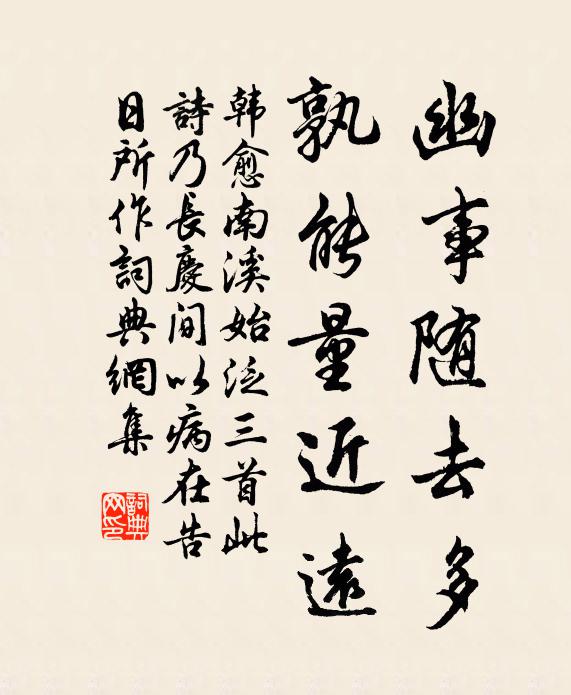 幽事随去多
孰能量近遠
韩愈南溪始泛三首此
詩乃長慶间以病在告
日所作詞典網集
詞典
网印